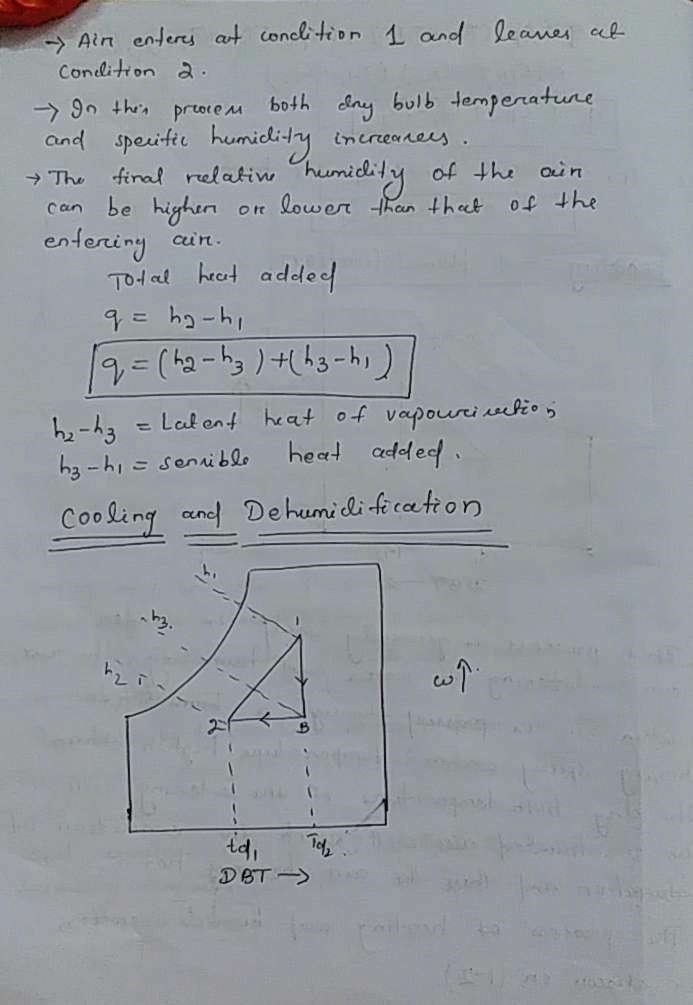 → Air enters at condition 1 and leaves at
condition 2.
→ In this process both dry bulb temperature
and specific humidity increases.
→ The final relative humidity of the air
can be higher or lower than that of the
entering air.
Total heat added
q = h2-h1
q = (h2-h3)+(h3-h1)
h2-h3 = Latent heat of vapourization
h3-h1 = sensible heat added.
Cooling and Dehumidification
h1
h3.
1
h2
ω↑
2
3
td1 Td2
DBT →